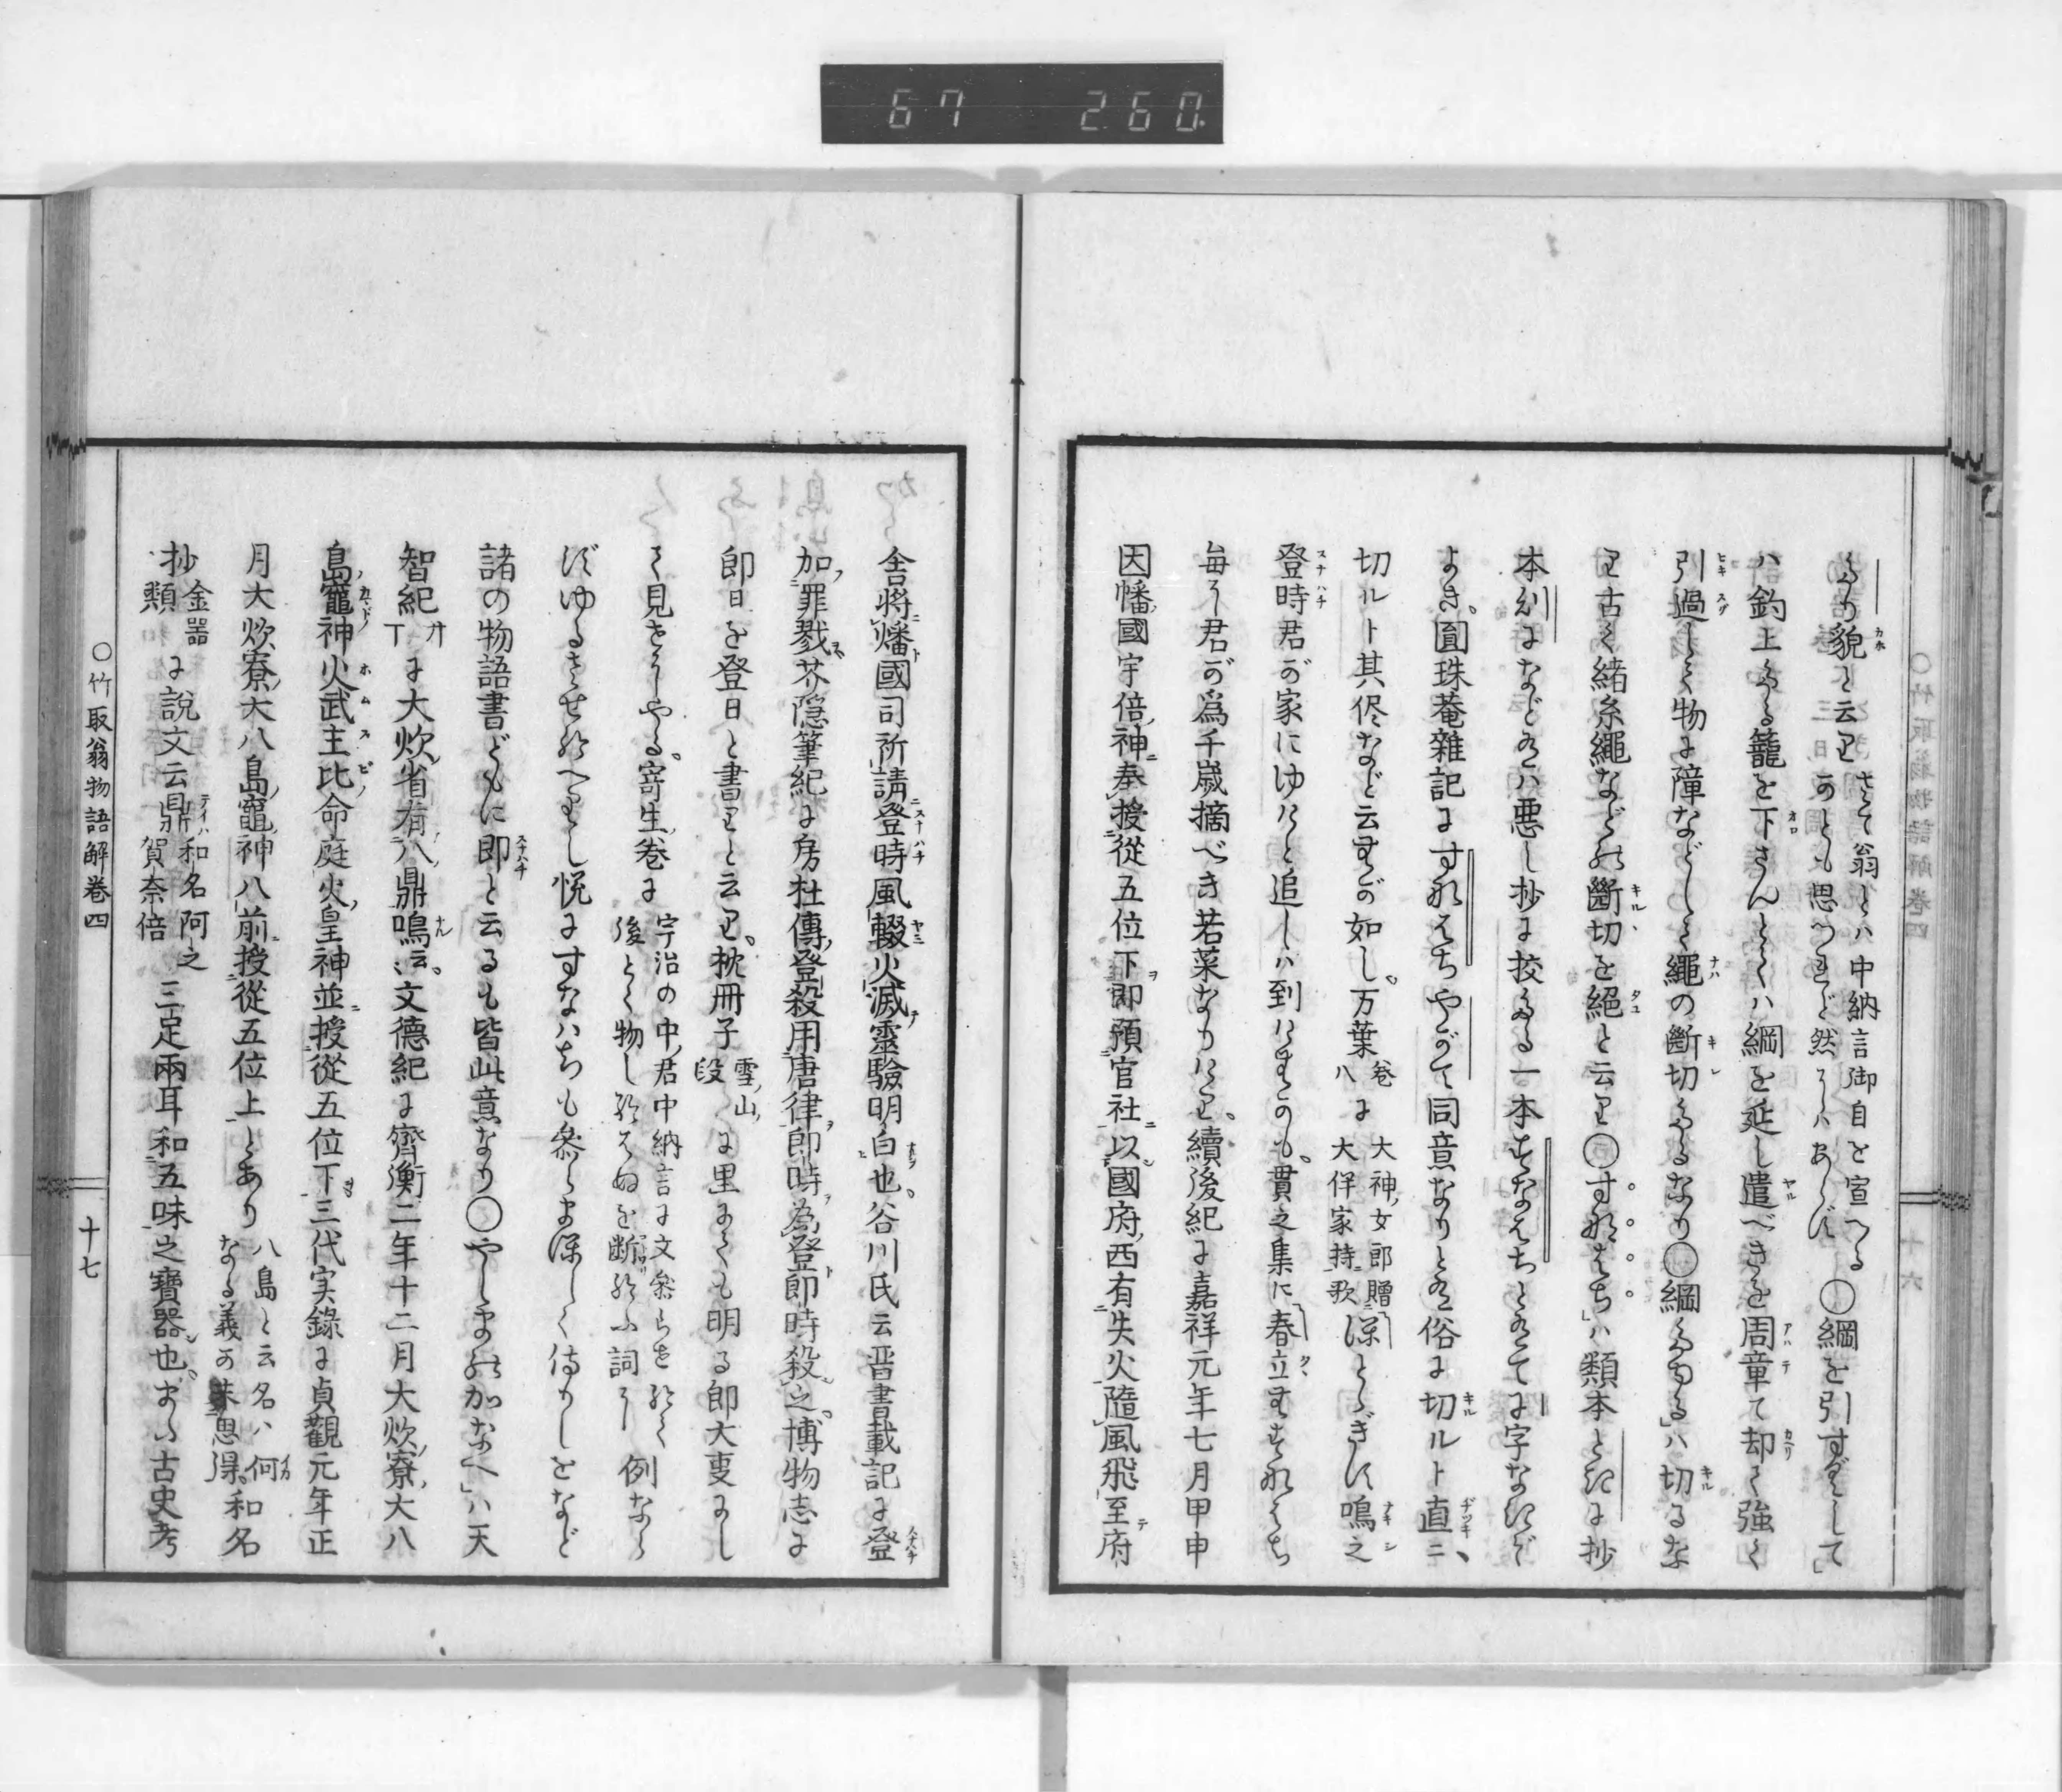 67 260
たり貌と云り さて翁とハ中納言御自を宣へる のとも思つれど然にハあらず ○綱を引すぐして」
ハ釣上たる籠を下さんとてハ綱を延し遣べきを周章て却て強く
引過して物に障などして繩の斷切たるなり○綱たゆる」ハ切るな
り古く緒糸繩などの斷切を絕と云り○すなはち」ハ類本と
本になどあるハ悪し抄に挍たる一本すなはちとありてに字なきぞ
よき。圓珠菴雜記にすなはちやがて同意なりとあるハ俗に切ルト直ニ
切ルト其侭など云が如し。万葉 卷八 に 大神女郎贈大伴家持歌
登時君が家にゆけと追しハ到けるのも。貫之集に春立
毎に君が爲千歲摘べき若菜なりけり。續後紀に嘉祥元年七月甲申
因幡國宇倍神奉授從五位下即預官社以國府西有失火隨風飛至府
舍將燔國司祈請登時風輟火滅靈驗明白也。谷川氏云晋書載記に登
加罪戮芥隠筆紀に房杜傳登殺用唐律即時為登即時殺之。博物志に
即日を登日と書りと云り。枕冊子 雪山段 に里にても明る即大事にし
て見せにやる。寄生卷に 宇治の中君中納言に文參らせ給て後とく物し給はぬを斷給ふ詞に 例なら
ずゆるさせ給へりし悦にすなハちも參らまほしく侍りしをなど
諸の物語書どもに即と云るも皆此意なり○やしまのかなへ」ハ天
智紀 に大炊省有八鼎鳴云々文德紀に齊衡二年十二月大炊寮大八
島竈神火武主比命庭火皇神並授從五位下三代実錄に貞觀元年正
月大炊寮大八島竈神八前授從五位上とあり 八島と云名ハ何なる義の未思得 和名
抄 金器類 に說文云鼎 和名阿之賀奈倍 三足兩耳和五味之寶器也。古史考
○竹取翁物語解卷四
十七